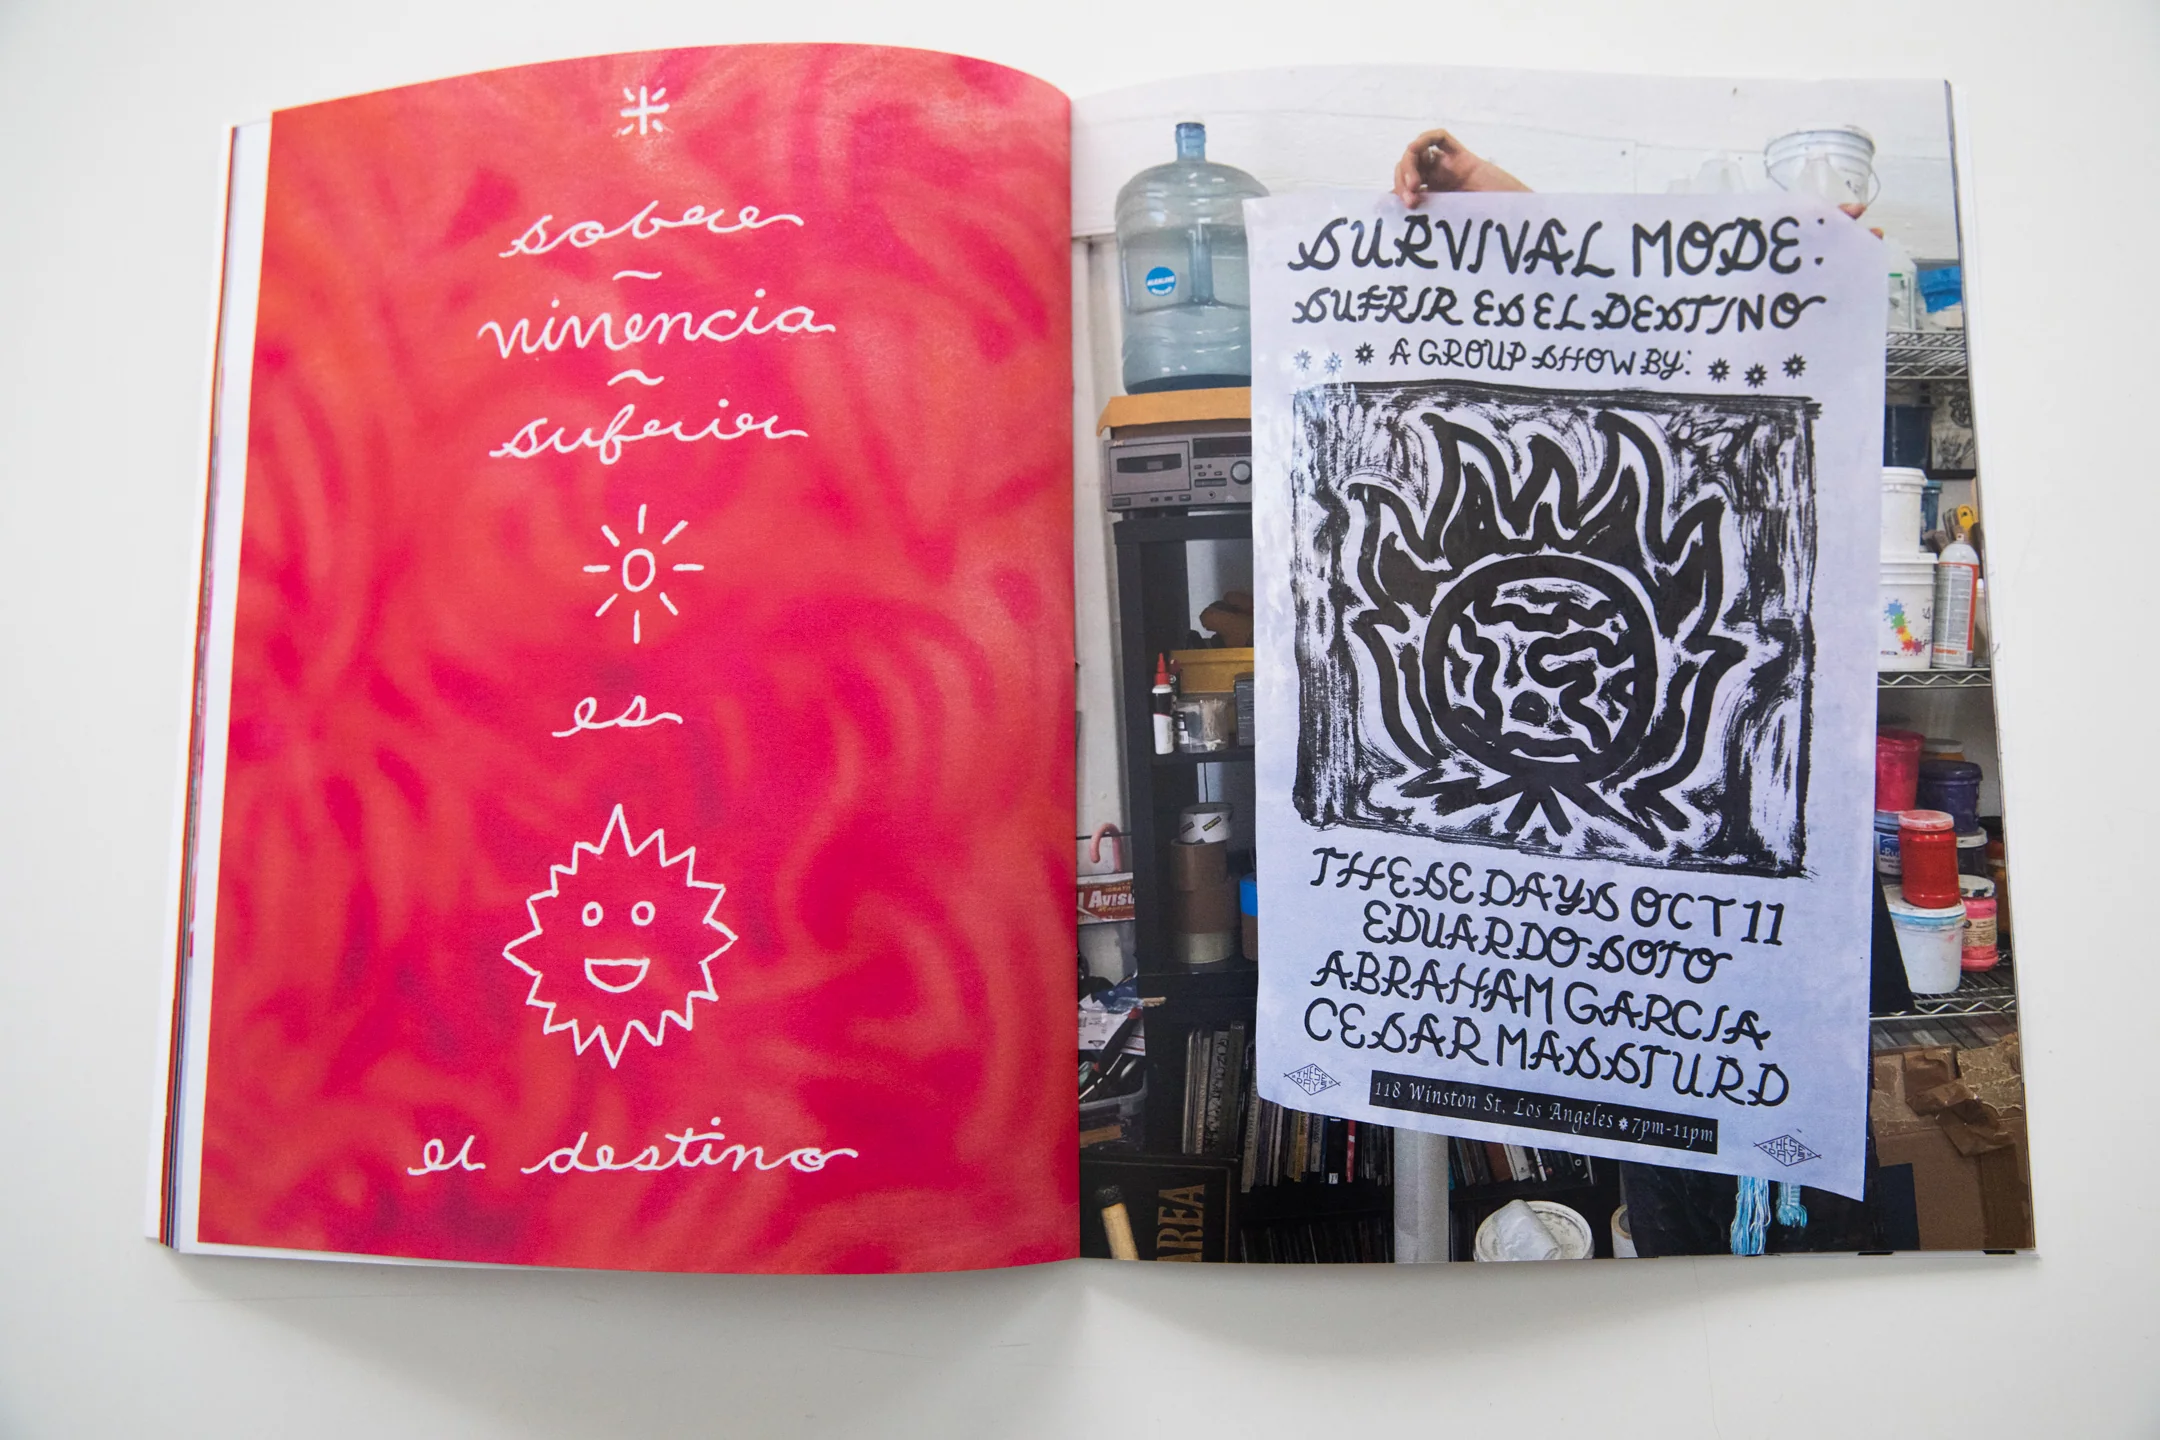 sobre
~
vivencia
~
sufrir
es
el destino
SURVIVAL MODE:
SUFRIR ES EL DESTINO
A GROUP SHOW BY:
THESE DAYS OCT 11
EDUARDO SOTO
ABRAHAM GARCIA
CESAR MASSTURD
THESE
DAYS
118 Winston St. Los Angeles * 7pm-11pm
THESE
DAYS
ALKALINE
AREA